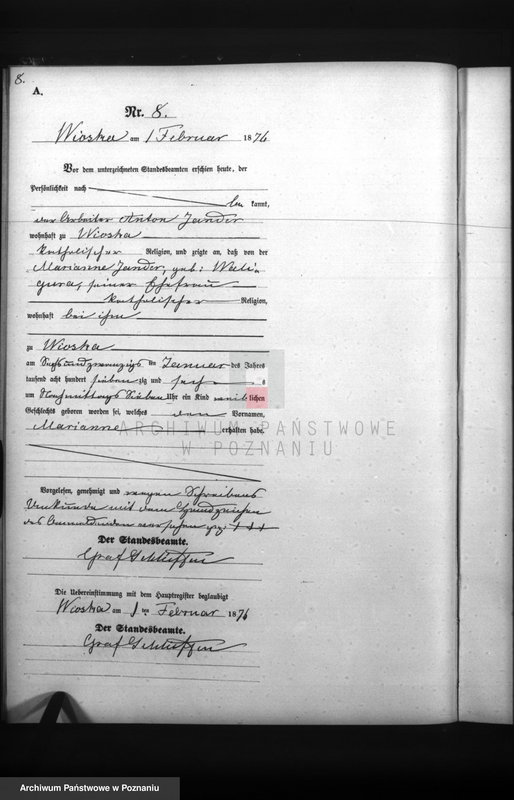 8.
A.
Nr. 8.
Wioska am 1 Februar 1876
Vor dem unterzeichneten Standesbeamten erschien heute, der
Persönlichkeit nach
be kannt,
der Arbeiter Anton Jander
wohnhaft zu Wioska
katholischer Religion, und zeigte an, daß von der
Marianne Jander, geb: Wali-
gura, seiner Ehefrau
katholischer Religion,
wohnhaft bei ihm
zu Wioska
am Sechsundzwanzigsten Januar des Jahres
tausend acht hundert sieben zig und sech s
um Nachmittags Sieben Uhr ein Kind weib lichen
Geschlechts geboren worden sei, welches den Vornamen,
Marianne erhalten habe.
ARCHIWUM PAŃSTWOWE
W POZNANIU
Vorgelesen, genehmigt und wegen Schreibens
Unkunde mit dem Handzeichen
des Anmeldenden versehen gez: +++
Der Standesbeamte.
Graf Schlieffen
Die Uebereinstimmung mit dem Hauptregister beglaubigt
Wioska am 1 ten Februar 1876
Der Standesbeamte.
Graf Schlieffen
Archiwum Państwowe w Poznaniu